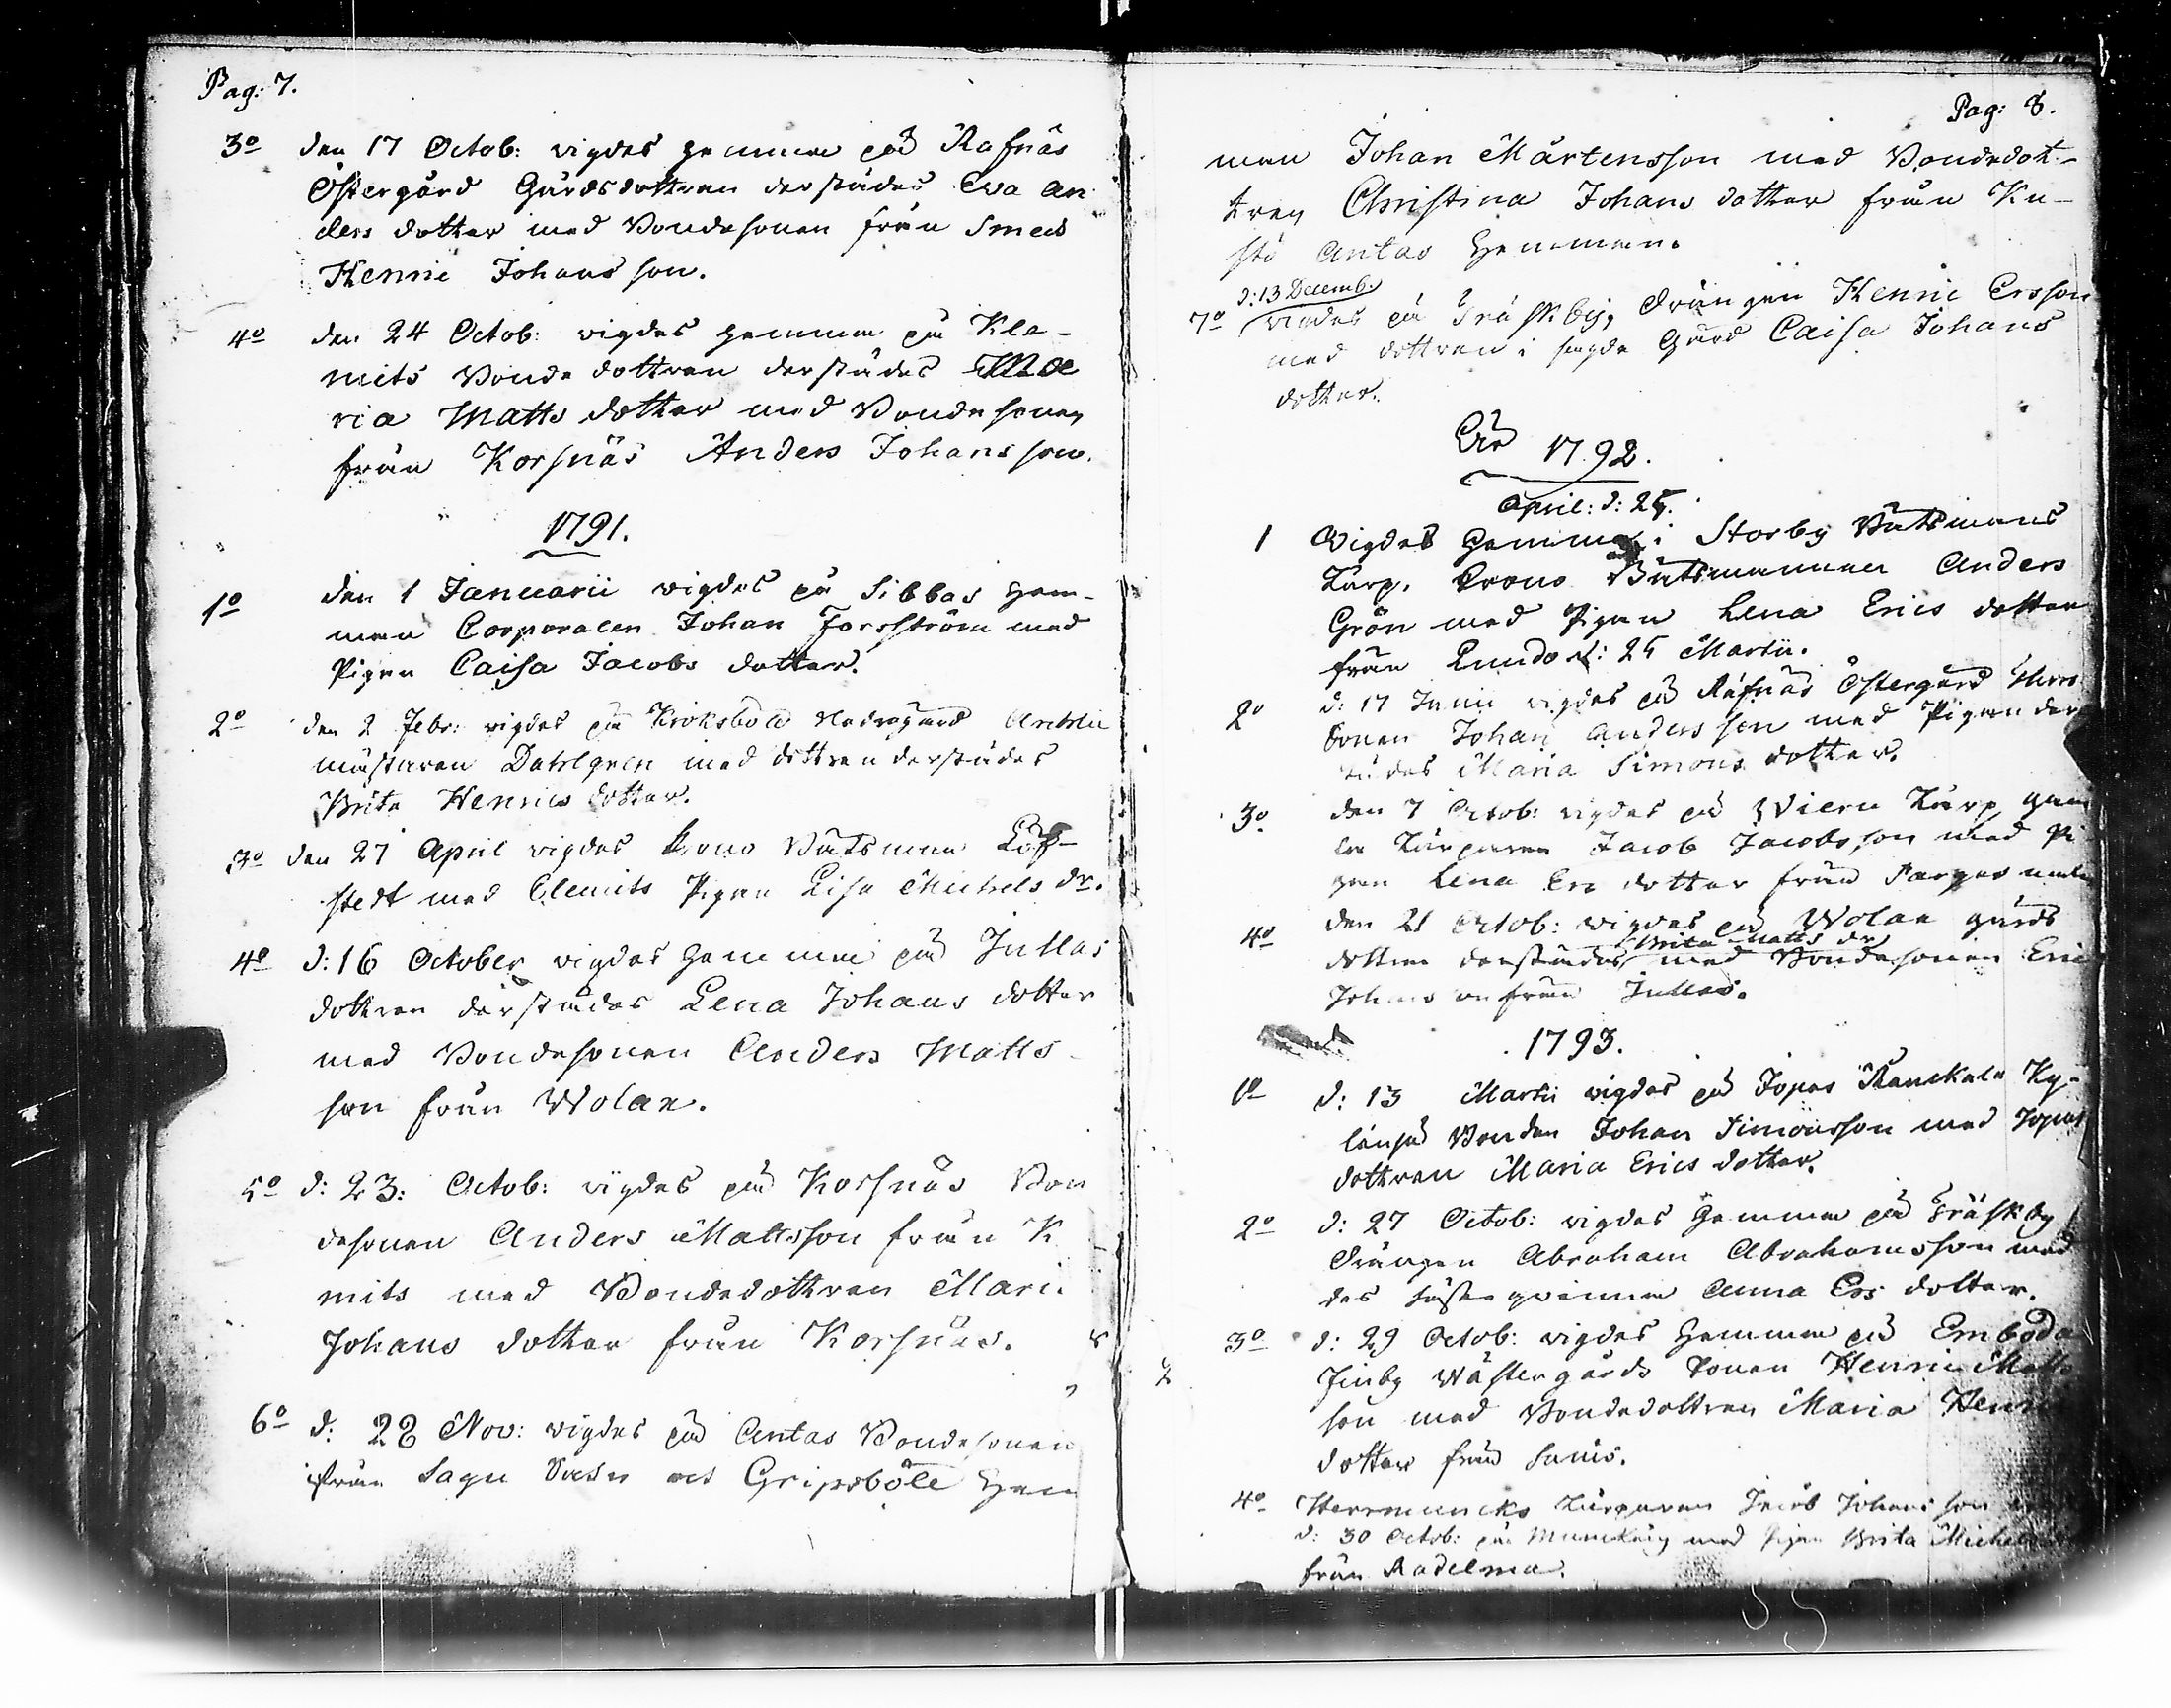 Pag: 7.
3o den 17 Octob: vigdes hemma på Rafnäs
Östergård Gårdsdottren derstädes Eva An
ders dotter med Bondesonen från Smeds
Henric Johans son.
4o den 24 Octob: vigdes hemma på Kle-
mets Bonde dottren derstädes Ma
ria Matts dotter med Bondesonen
från Korsnäs Anders Johans son.
1791.
1o den 1 Januarii vigdes på Sibbas hem-
man Corporalen Johan Forsström med
Pigan Caisa Jacobs dotter.
2o den 2 Febr: vigdes på Kroksböle Nedregård
mästaren Dahlgren med dottren derstädes
Brita Henrics dotter.
3o den 27 April vigdes Krono Båtsman Löf-
stedt med Clemits Pigan Lisa Michels dr.
4o d: 16 October vigdes hemma på Jullas
dottren derstädes Lena Johans dotter
med Bondesonen Anders Matts
son från Wolax.
5o d: 23: Octob: vigdes på Korsnäs Bon
desonen Anders Mattsson från K
mits med Bondedottren Mari
Johans dotter från Korsnäs.
6o d: 22 Nov: vigdes på Antas Bondesonen
från Sagu Sokn och Gripsböle Hem
Pag: 8.
man Johan Mårtensson med Bondedot-
tren Christina Johans dotter från Ku-
stö Antas Hemman.
d: 13 Decemb.
7o vigdes på Träskby, Drängen Henric Ersson
med dottren i sagde Gård Caisa Johans
dotter.
År 1792.
April: d: 25.
1 Vigdes hemma i Storby Båtsmans
Torp, Krono Båtsmannen Anders
Grön med Pigan Lena Erics dotter
från Lundo d: 25 Martii.
2o d: 17 Junii vigdes på Rafnäs Östergård
Sonen Johan Anders son med Pigan der
städes Maria Simons dotter.
3o den 7 Octob: vigdes på Torp gam
le Torparen Jacob Jacobsson med Pi
gan Lena Ers dotter från Pargas
4o den 21 Octob: vigdes på Wolax gårds
Brita Matts dr
dottren derstädes med Bondesonen Eric
Johans son från Jullas.
1793.
1o d: 13 Martii vigdes på Jopas Ky-
länpä Bonden Johan Simonsson med Jopas
dottren Maria Erics dotter.
2o d: 27 Octob: vigdes hemma på Träskby
Drängen Abraham Abrahamsson med
des fästeqvinna Anna Ers dotter.
3o d: 29 Octob: vigdes hemma på Emboda
Finby Wästergårds Sonen Henric Matts
son med Bondedottren Maria Henri
dotter från
4o Herrmuncks Torparen Jacob Johans son
d: 30 Octob: på med Pigan Brita Michels
från Radelma.